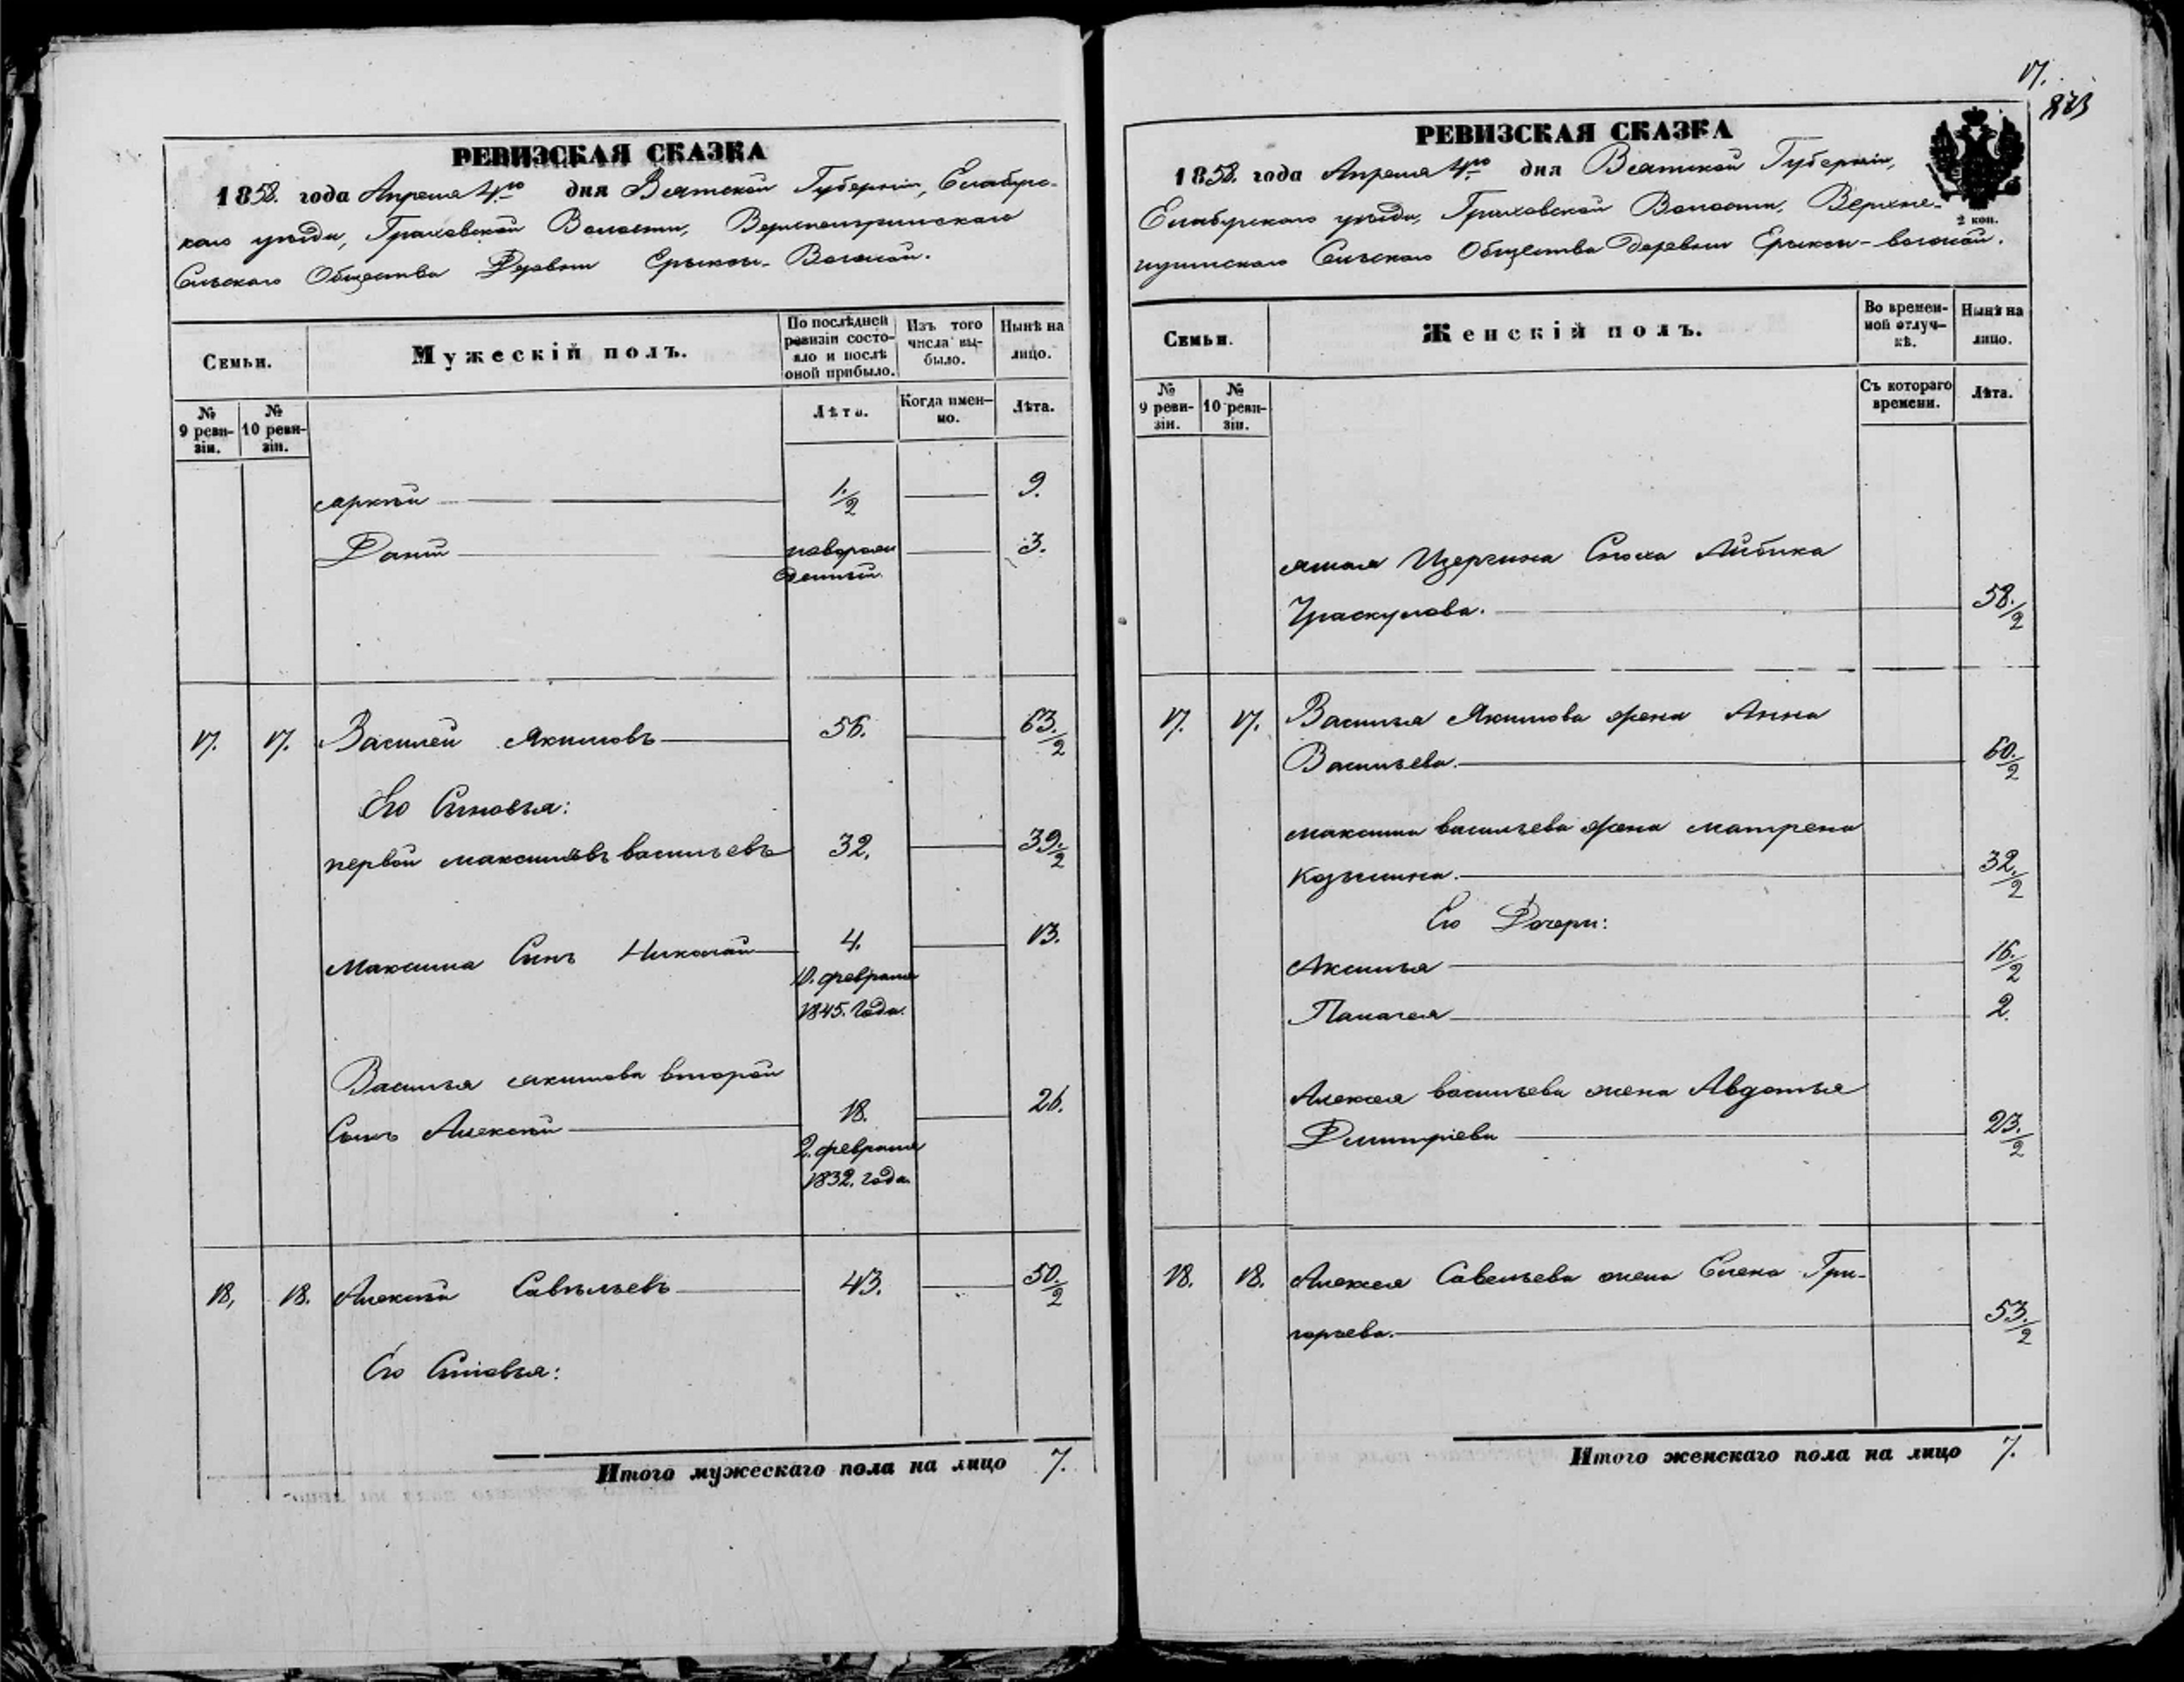 РЕВИЗСКАЯ СКАЗКА
1858. года Апреля 4го дня Вятской Губернiи, Елабугс-
каго уѣзда, Граховской Волости,
Сельскаго Общества Деревни Ерыксы-Вотской.
Семьи.
Мужескiй полъ.
По послѣдней
ревизiи состо-
яло и послѣ
оной прибыло.
Изъ того
числа вы-
было.
Нынѣ на
лицо.
№
9 реви-
зiи.
№
10 реви-
зiи.
Лѣта.
Когда имен-
но.
Лѣта.
1/2 9.
Данил новорож
денный 3.
17. 17. Василей Якимовъ 56. 63 1/2
Его Сыновья:
первой васильевъ 32. 39 1/2
Максима Сынъ Николай 4. 13.
10. февраля
1845. года.
Василья якимова второй
Сынъ Алексѣй 18. 26.
2. февраля
1832. года
18. 18. Алексѣй Савѣльевъ 43. 50 1/2
Его Сыновья:
Итого мужескаго пола на лицо 7.
17.
РЕВИЗСКАЯ СКАЗКА
1858. года Апреля 4го дня Вятской Губернiи,
2 коп.
Елабугскаго уѣзда, Граховской Волости, Верхне-
Сельскаго Общества деревни Ерыксы-вотской.
Семьи.
Женскiй полъ.
Во времен-
ной отлуч-
кѣ.
Нынѣ на
лицо.
№
9 реви-
зiи.
№
10 реви-
зiи.
Съ котораго
времени.
Лѣта.
Сноха
58 1/2
17. 17. Василья Якимова жена Анна
Васильева. 60 1/2
максима васильева жена матрена
Козьмина. 32 1/2
Его Дочери:
Аксинья 16 1/2
Палагея 2.
Алексея васильева жена Авдотья
Дмитрiева 23 1/2
18. 18. Алексея Савельева жена Елена Гри-
горьева. 53 1/2
Итого женскаго пола на лицо 7.